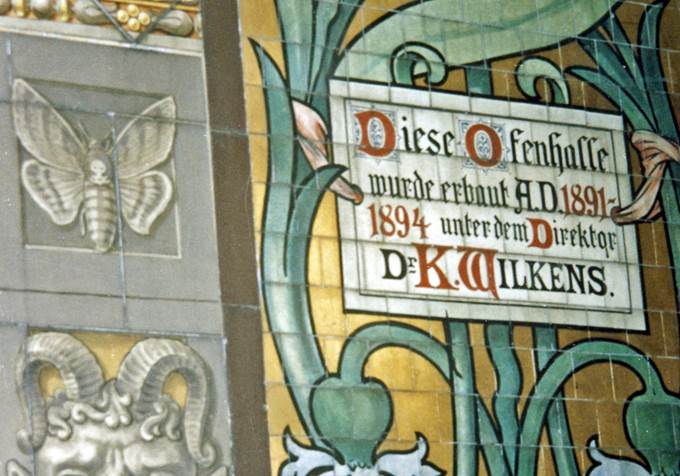 Diese Ofenhalle
wurde erbaut A.D. 1891-
1894 unter dem Direktor
Dr K. WILKENS.